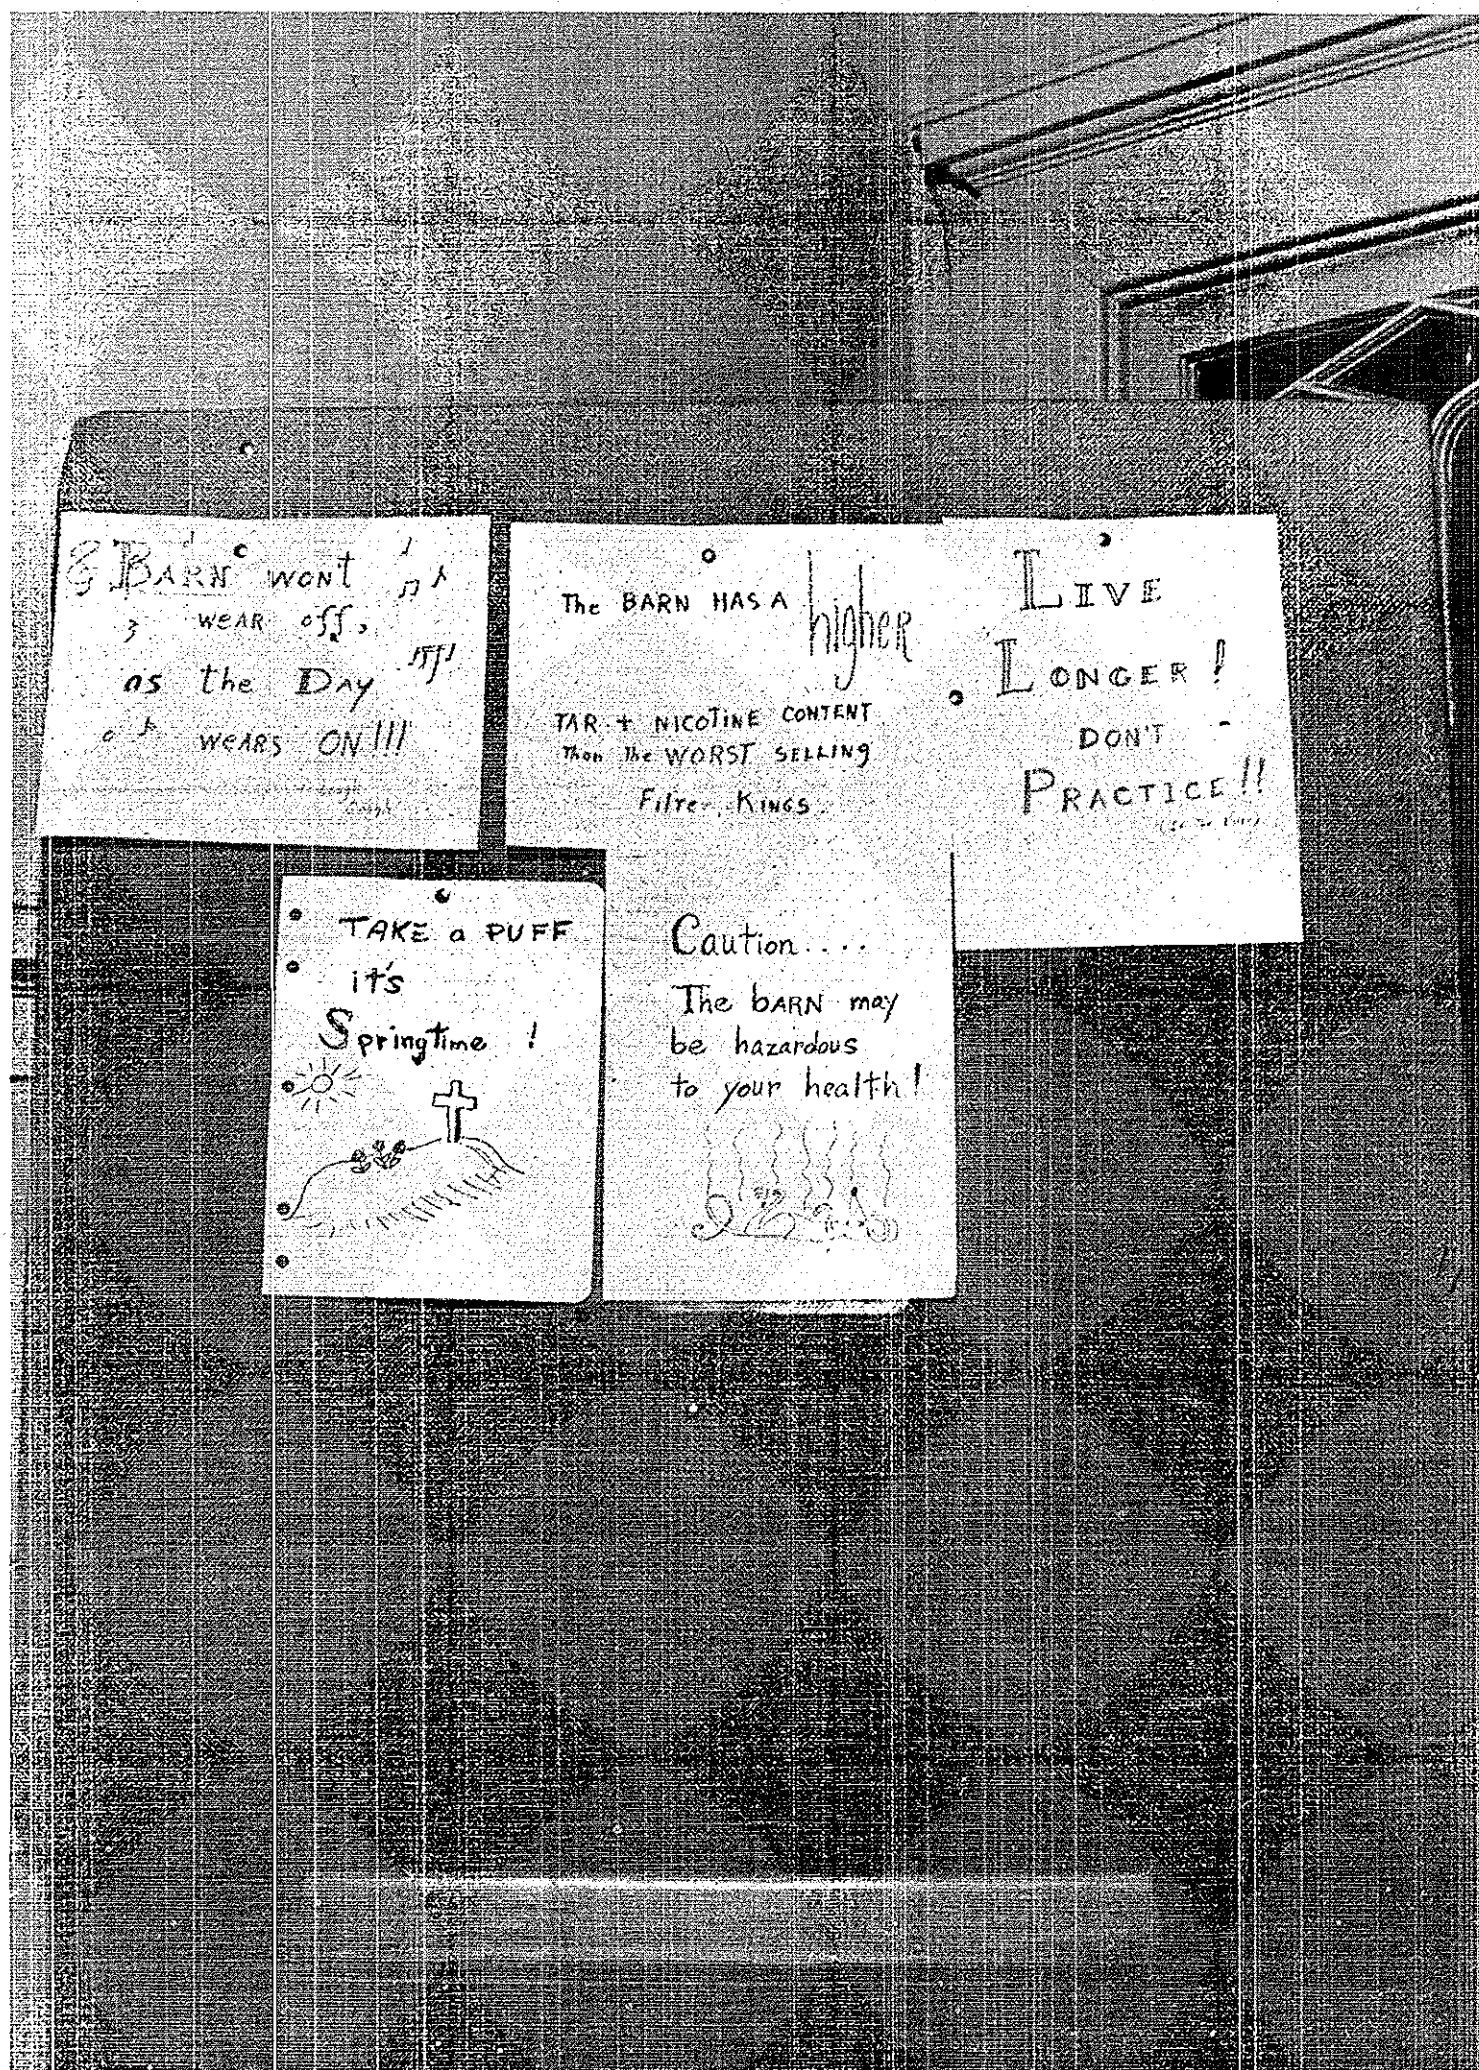 BARN WONT
WEAR off,
as the DAY
WEARS ON!!!
The BARN HAS A higher
TAR + NICOTINE CONTENT
Than the WORST SELLING
Filter KINGS.
LIVE
LONGER!
DON'T
PRACTICE!!
TAKE a PUFF
it's
Springtime !
Caution....
The bARN may
be hazardous
to your health!